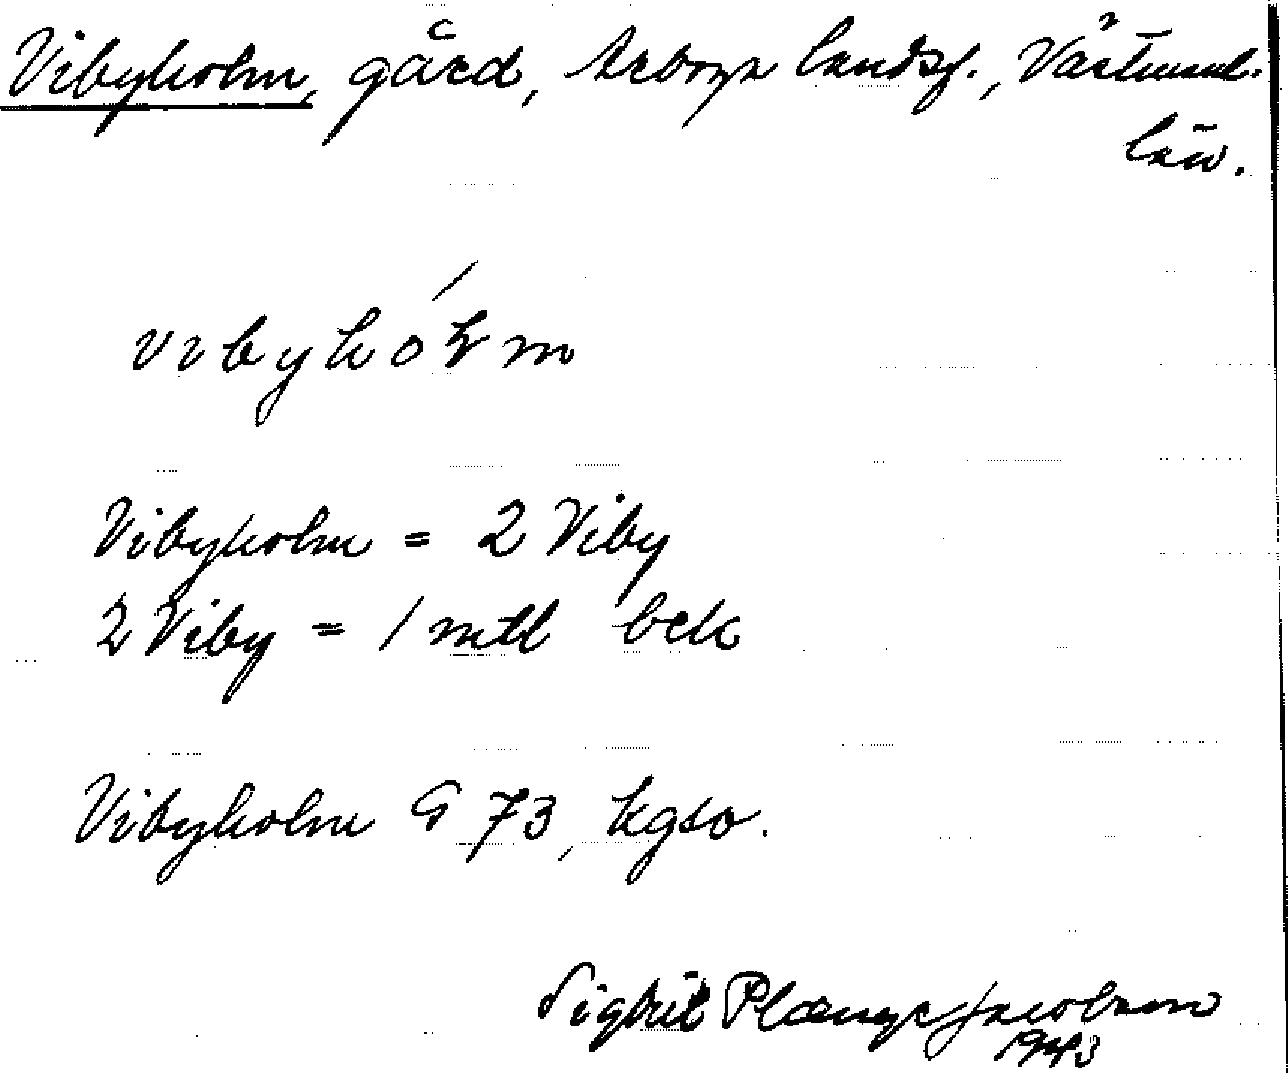 Vibyholm, gård, Arboga landsf., Västmanl.
län.
vibyhólm
Vibyholm = 2 Viby
2 Viby = 1 mtl bek
Vibyholm G 73, kgso.
Sigbrit Plænge Jacobson
1943